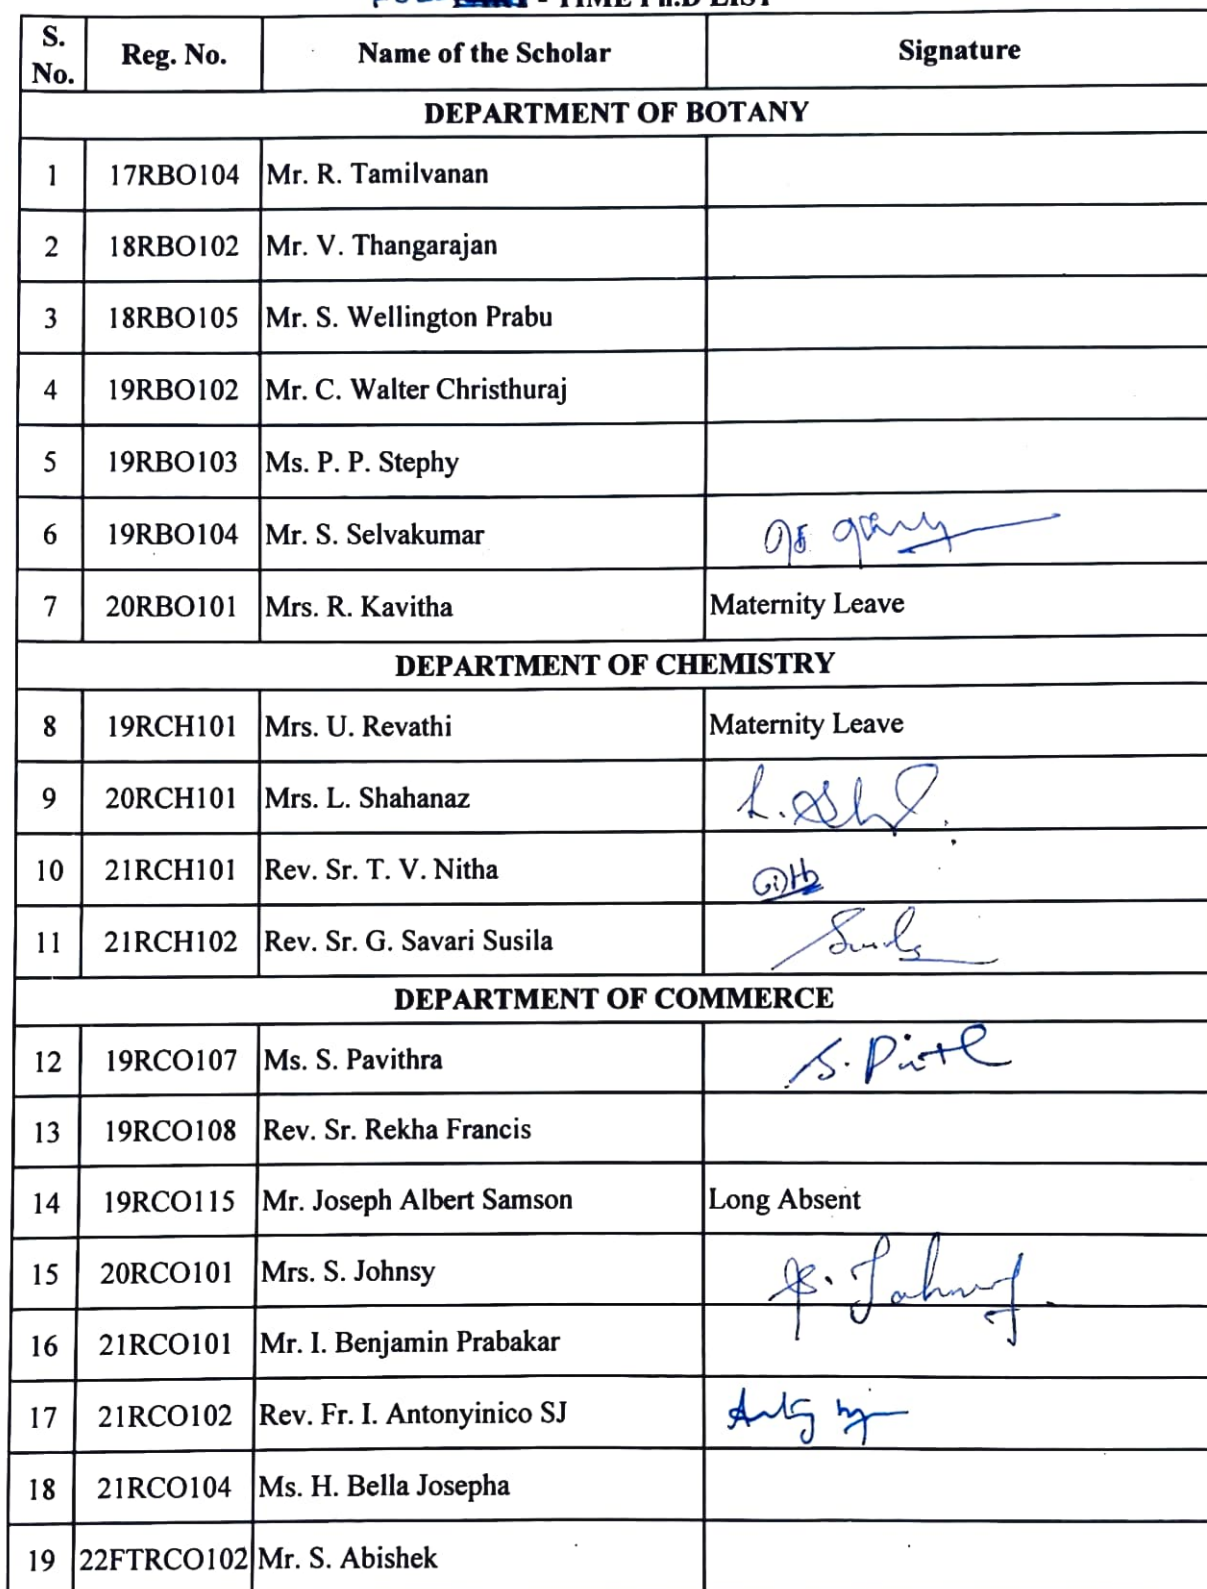 - TIME Ph.D LIST
S. No. Reg. No. Name of the Scholar Signature
DEPARTMENT OF BOTANY
1 17RBO104 Mr. R. Tamilvanan
2 18RBO102 Mr. V. Thangarajan
3 18RBO105 Mr. S. Wellington Prabu
4 19RBO102 Mr. C. Walter Christhuraj
5 19RBO103 Ms. P. P. Stephy
6 19RBO104 Mr. S. Selvakumar
7 20RBO101 Mrs. R. Kavitha Maternity Leave
DEPARTMENT OF CHEMISTRY
8 19RCH101 Mrs. U. Revathi Maternity Leave
9 20RCH101 Mrs. L. Shahanaz
10 21RCH101 Rev. Sr. T. V. Nitha
11 21RCH102 Rev. Sr. G. Savari Susila
DEPARTMENT OF COMMERCE
12 19RCO107 Ms. S. Pavithra
13 19RCO108 Rev. Sr. Rekha Francis
14 19RCO115 Mr. Joseph Albert Samson Long Absent
15 20RCO101 Mrs. S. Johnsy
16 21RCO101 Mr. I. Benjamin Prabakar
17 21RCO102 Rev. Fr. I. Antonyinico SJ
18 21RCO104 Ms. H. Bella Josepha
19 22FTRCO102 Mr. S. Abishek